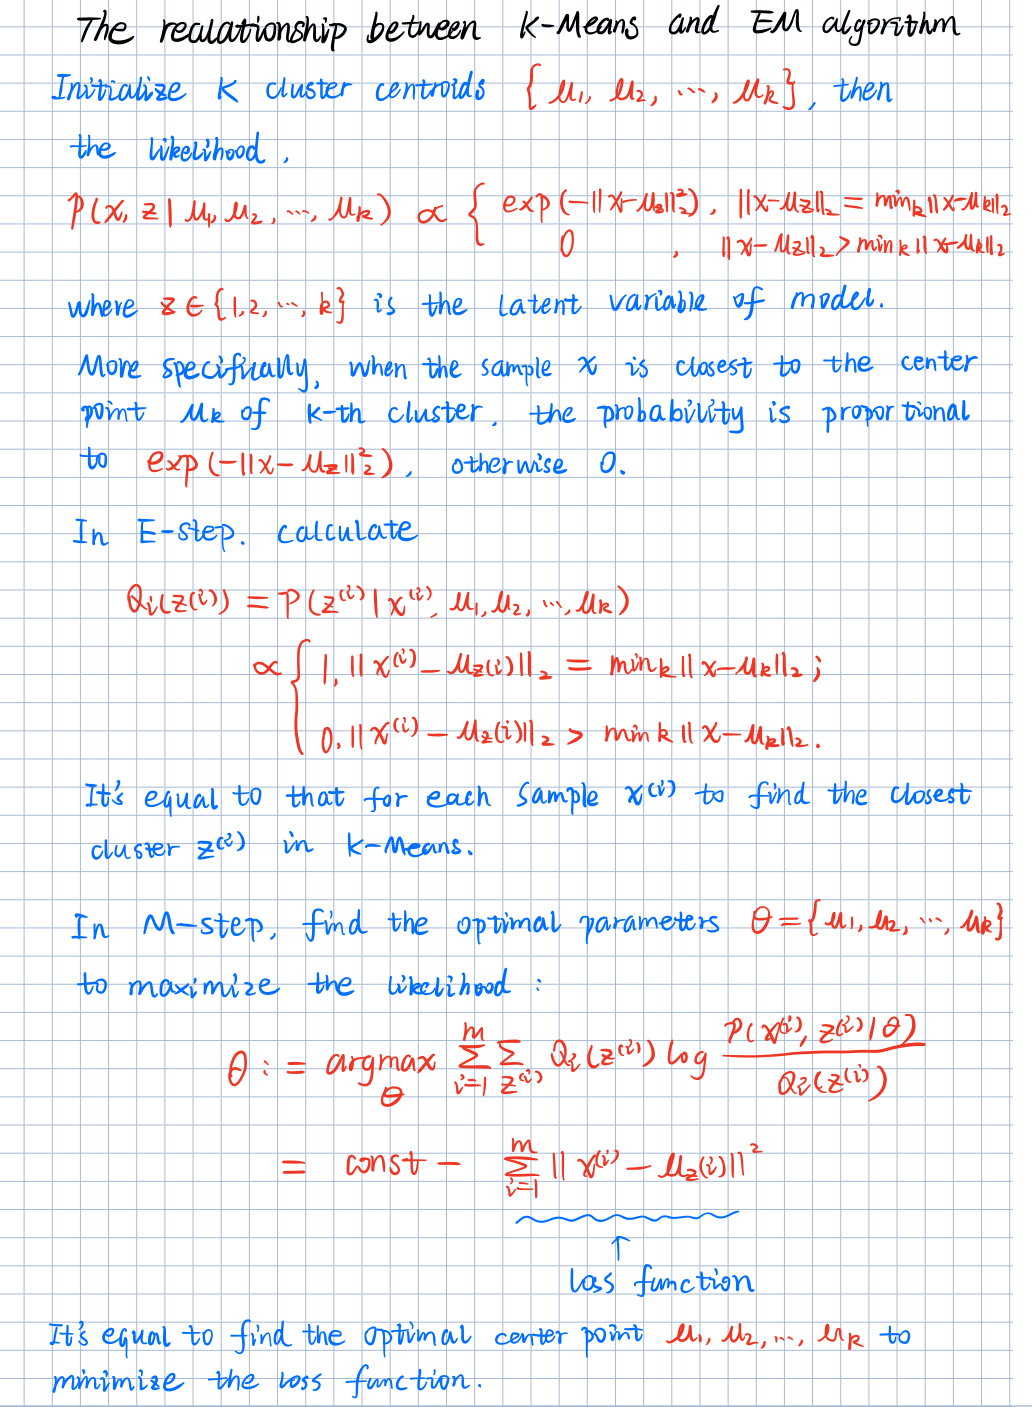 The realationship between K-Means and EM algorithm
Initialize K cluster centroids {μ₁, μ₂, ..., μₖ}, then
the likelihood,
P(x, z | μ₁, μ₂, ..., μₖ) ∝ { exp(-||x-μ_z||₂²), ||x-μ_z||₂ = minₖ||x-μₖ||₂
0, ||x-μ_z||₂ > minₖ||x-μₖ||₂
where z ∈ {1, 2, ..., k} is the latent variable of model.
More specifically, when the sample x is closest to the center
point μₖ of k-th cluster, the probability is proportional
to exp(-||x-μ_z||₂²), otherwise 0.
In E-step. calculate
Qᵢ(z⁽ⁱ⁾) = P(z⁽ⁱ⁾ | x⁽ⁱ⁾, μ₁, μ₂, ..., μₖ)
∝ { 1, ||x⁽ⁱ⁾ - μ_z(i)||₂ = minₖ||x-μₖ||₂;
0, ||x⁽ⁱ⁾ - μ_z(i)||₂ > minₖ||x-μₖ||₂.
It's equal to that for each sample x⁽ⁱ⁾ to find the closest
cluster z⁽ⁱ⁾ in k-Means.
In M-step, find the optimal parameters θ = {μ₁, μ₂, ..., μₖ}
to maximize the likelihood:
θ := argmax_θ Σ_{i=1}^{m} Σ_{z⁽ⁱ⁾} Qᵢ(z⁽ⁱ⁾) log P(x⁽ⁱ⁾, z⁽ⁱ⁾ | θ) / Qᵢ(z⁽ⁱ⁾)
= const - Σ_{i=1}^{m} ||x⁽ⁱ⁾ - μ_z(i)||²
↑
loss function
It's equal to find the optimal center point μ₁, μ₂, ..., μₖ to
minimize the loss function.